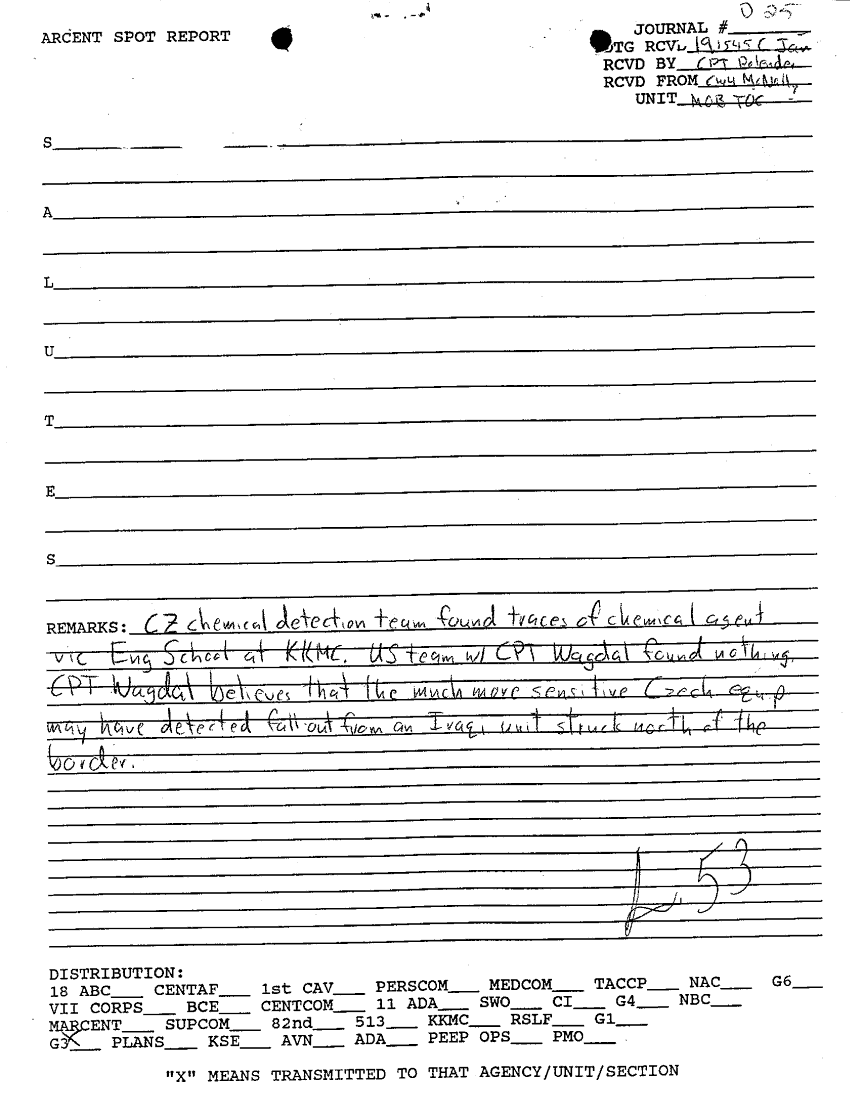 D 25
ARCENT SPOT REPORT
JOURNAL #
DTG RCVD 191545C Jan
RCVD BY CPT
RCVD FROM CW4 McNally
UNIT MOB TOC
S
A
L
U
T
E
S
REMARKS: CZ chemical detection team found traces of chemical agent
vic Eng School at KKMC. US team w/ CPT Wagdal found nothing.
CPT Wagdal believes that the much more sensitive Czech equip
may have detected fall out from an Iraqi unit struck north of the
border.
53
DISTRIBUTION:
18 ABC___ CENTAF___ 1st CAV___ PERSCOM___ MEDCOM___ TACCP___ NAC___ G6___
VII CORPS___ BCE___ CENTCOM___ 11 ADA___ SWO___ CI___ G4___ NBC___
MARCENT___ SUPCOM___ 82nd___ 513___ KKMC___ RSLF___ G1___
G3 X___ PLANS___ KSE___ AVN___ ADA___ PEEP OPS___ PMO___
"X" MEANS TRANSMITTED TO THAT AGENCY/UNIT/SECTION